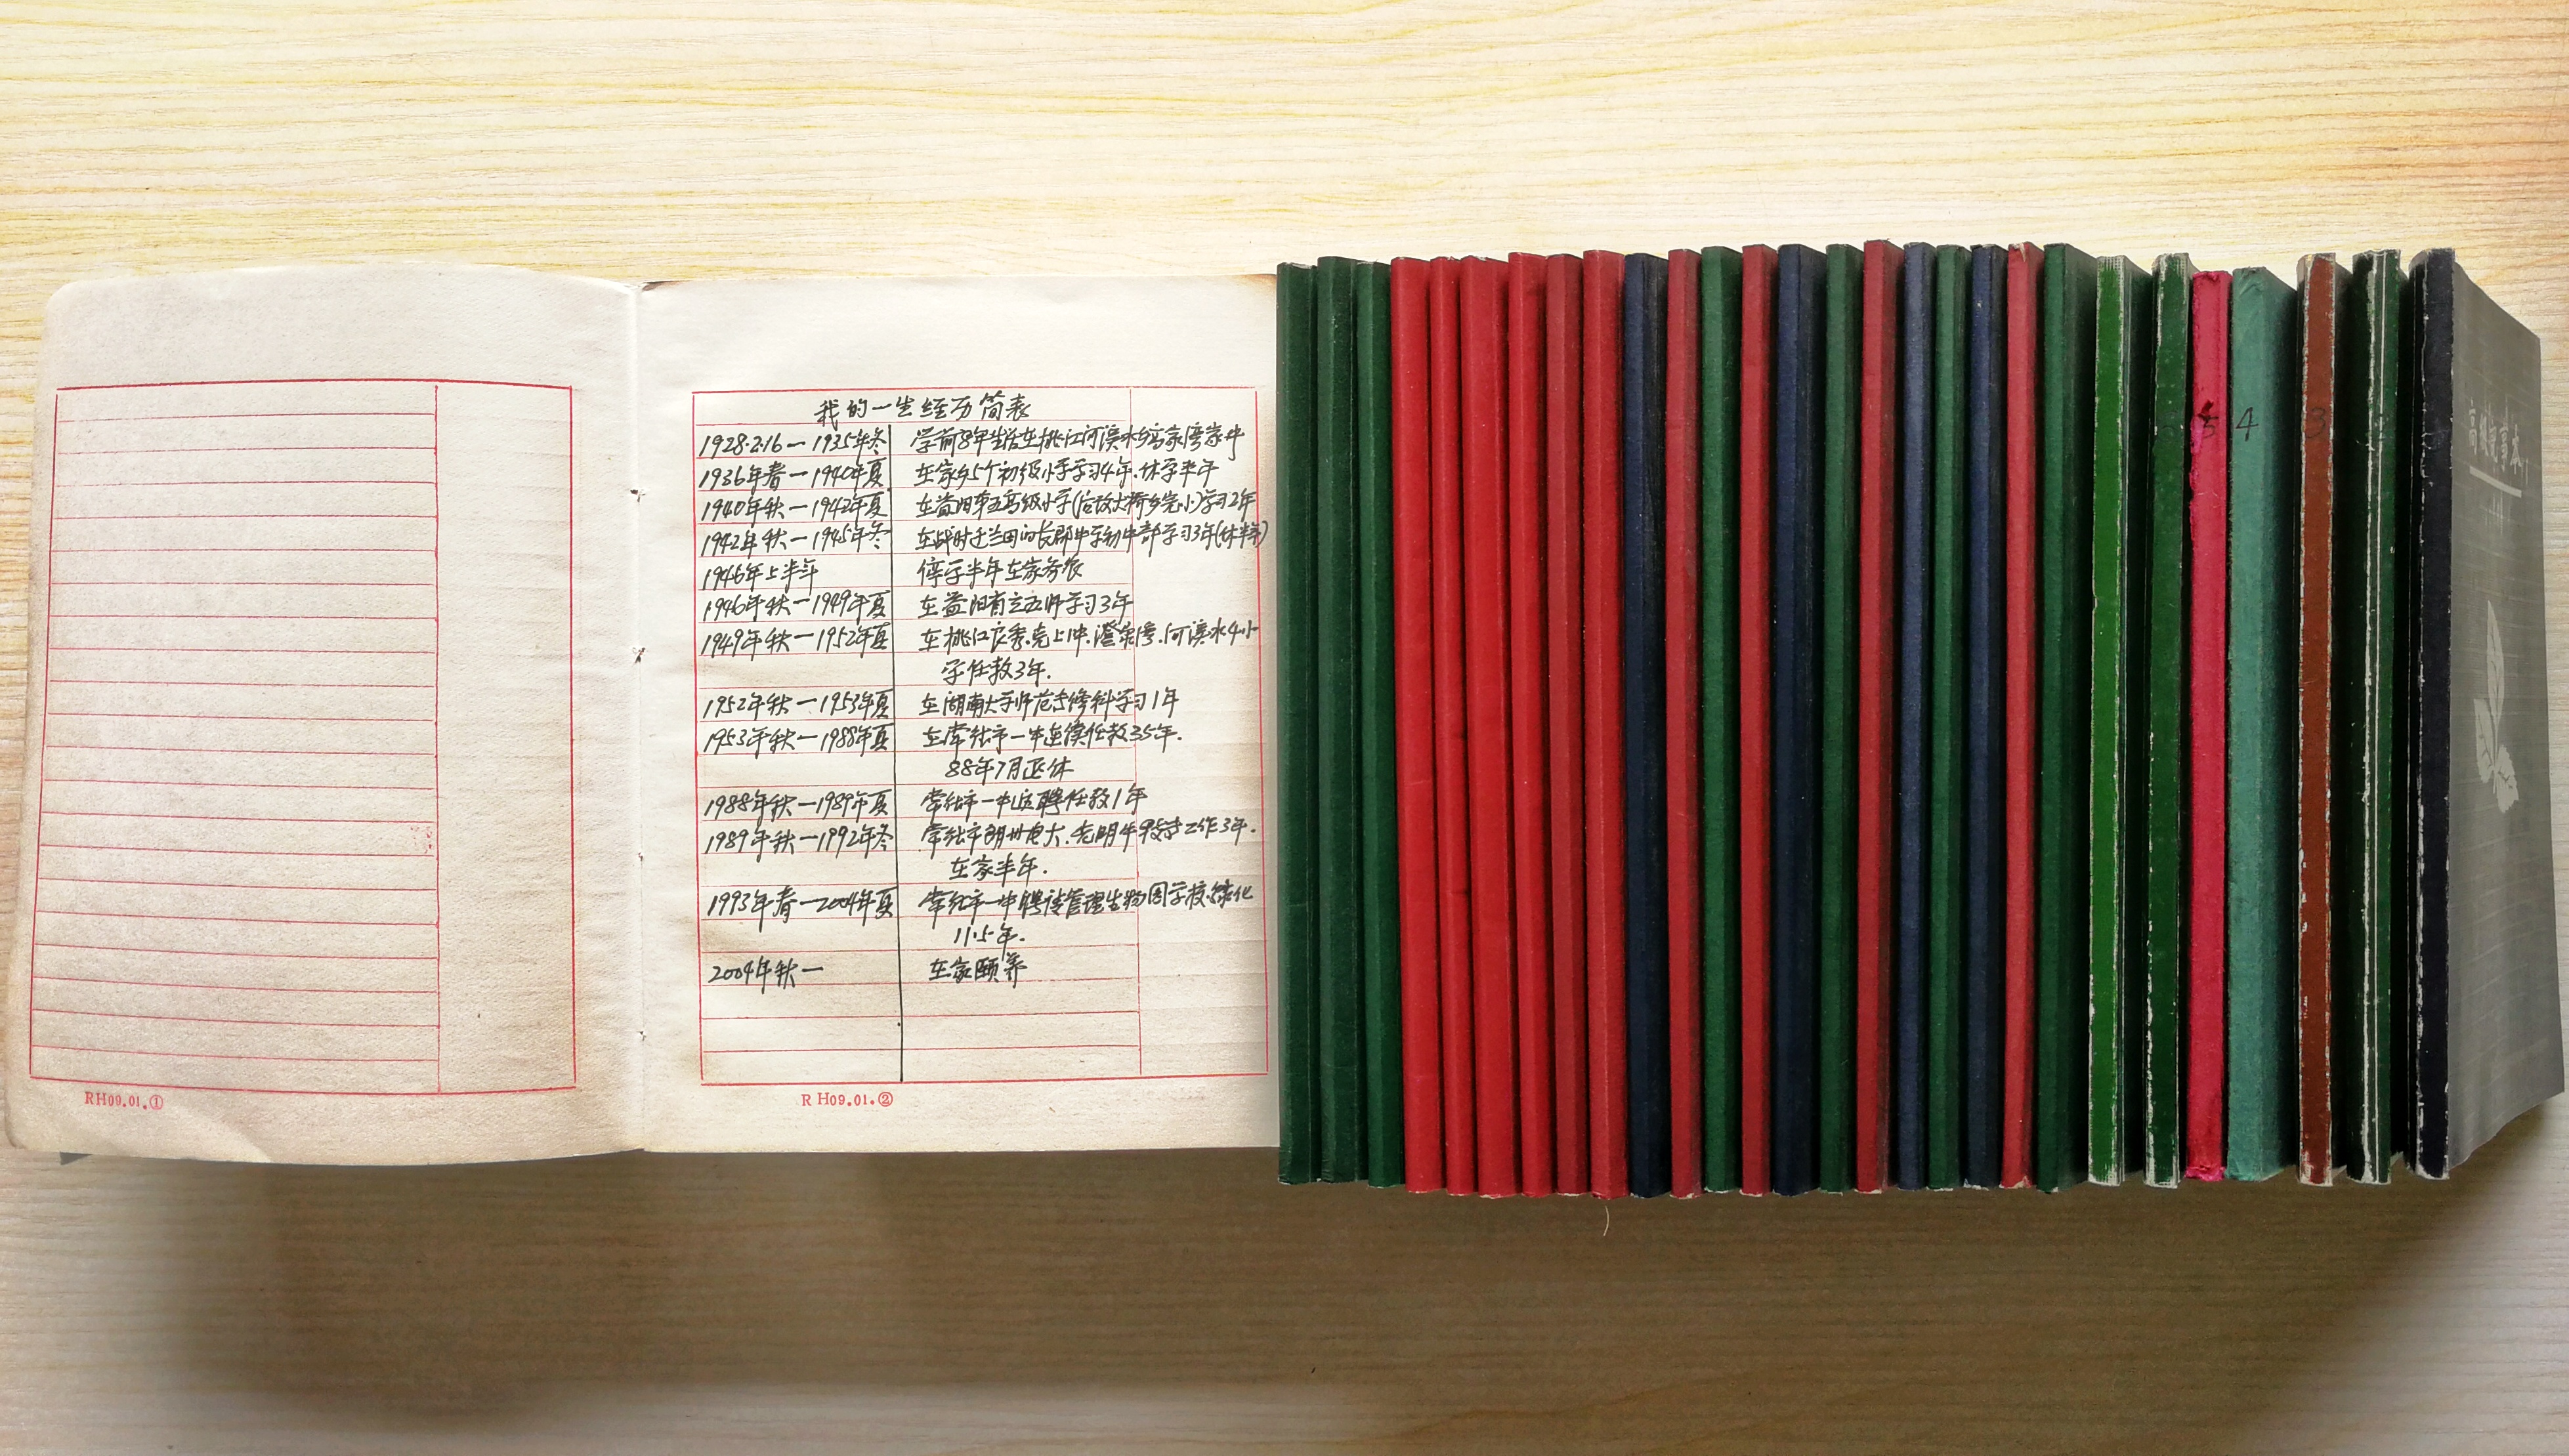 我的一生经历简表
1928.2.16—1935年冬 学前8年生活在桃江河溪水乡高家湾家中
1936年春—1940年夏 在家乡5个初级小学学习4年.休学半年
1940年秋—1942年夏 在益阳第五高级小学(后改大桥乡完小)学习2年
1942年秋—1945年冬 在战时迁兰田的长郡中学初中部学习3年(休半年)
1946年上半年 停学半年在家务农
1946年秋—1949年夏 在益阳省立五师学习3年
1949年秋—1952年夏 在桃江 河溪水4小
学任教3年.
1952年秋—1953年夏 在湖南大学师范专修科学习1年
1953年秋—1988年夏 在常德市一中连续任教35年.
88年7月退休
1988年秋—1989年夏 常德市一中返聘任教1年
1989年秋—1992年冬 常德市朗州电大. 工作3年.
在家半年.
1993年春—2004年夏 常德市一中聘请管理生物园学校绿化
11.5年.
2004年秋— 在家颐养
RH09.01.①
RH09.01.②
5
4
3
2
高级记事本